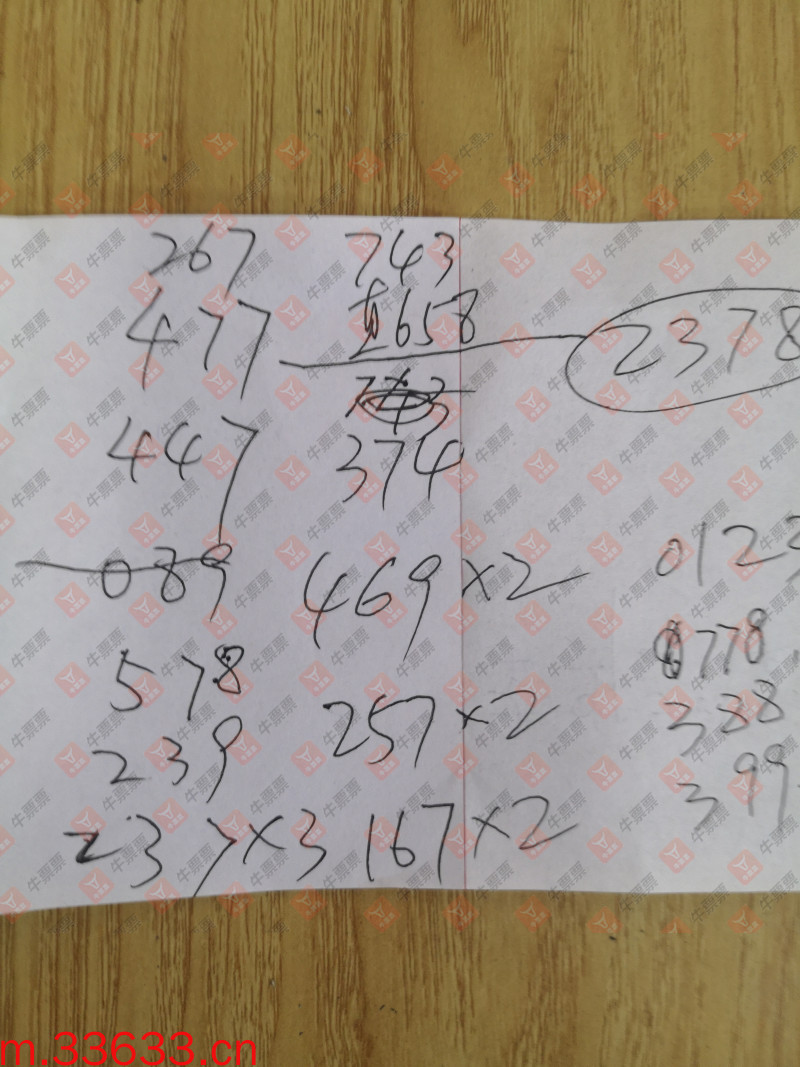 267 743
477 直658 2378
447 374
089 469×2 0123
578 257×2 778
239 338
237×3 167×2 399
牛票票
m.33633.cn